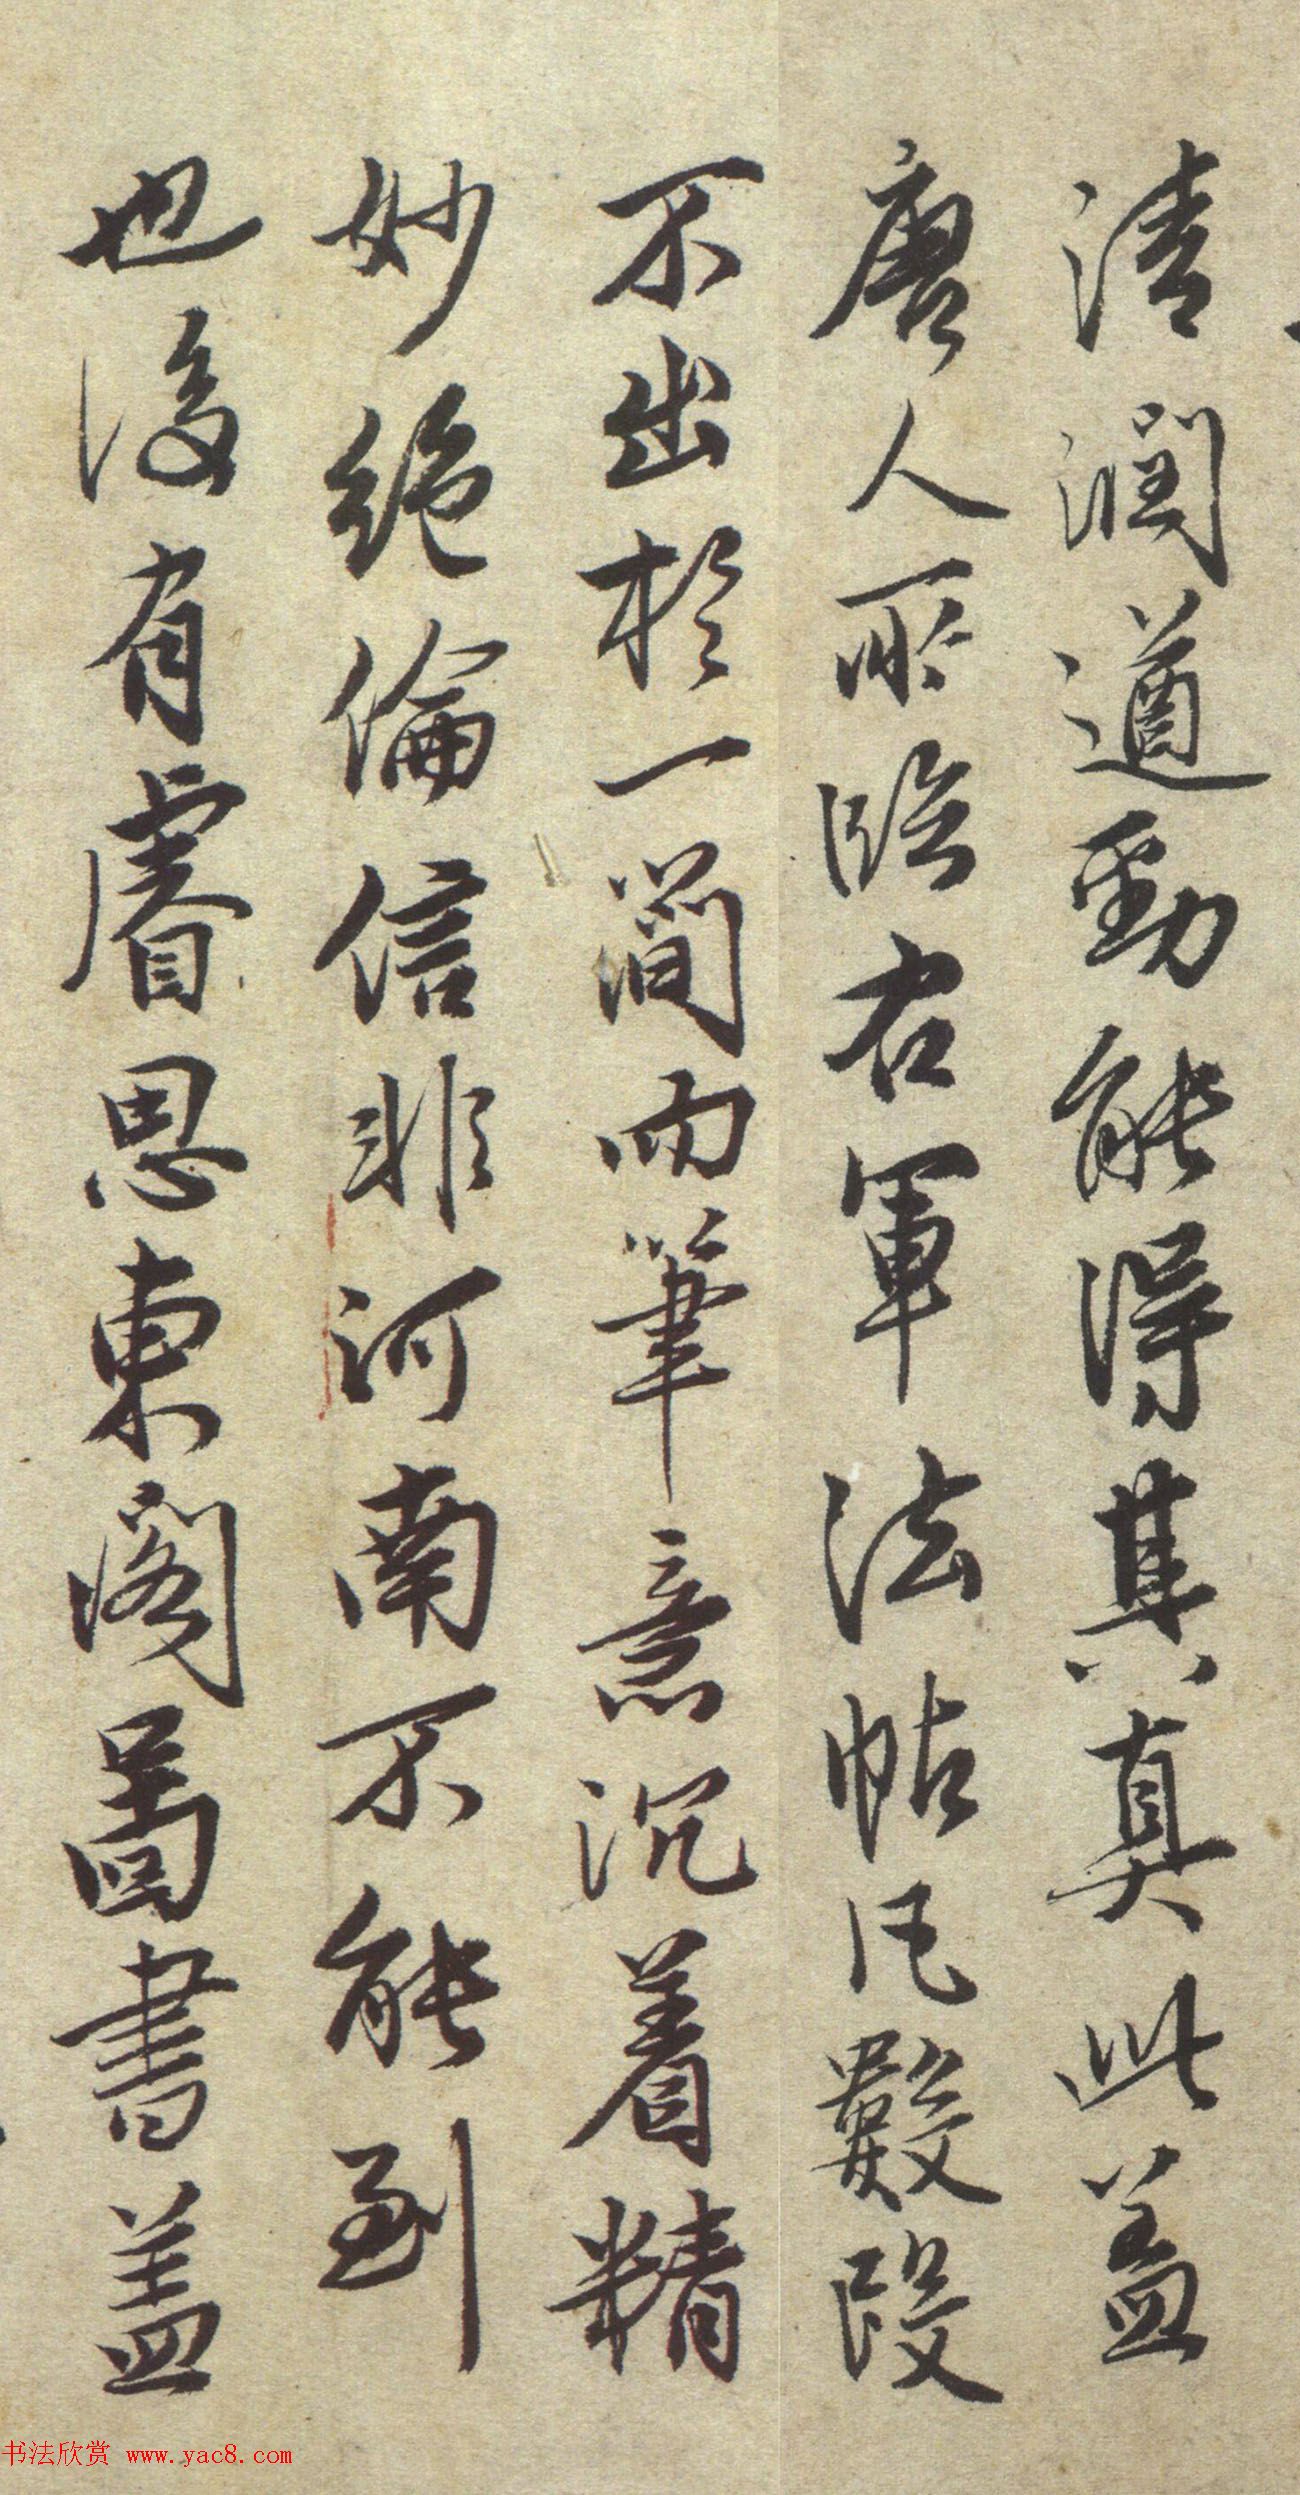 清潤遒勁能得其真此蓋
唐人所臨右軍法帖凡數段
不出於一簡而筆意沉着精
妙絶倫信非河南不能到
也後有睿思東閣圖書蓋
书法欣赏 www.yac8.com